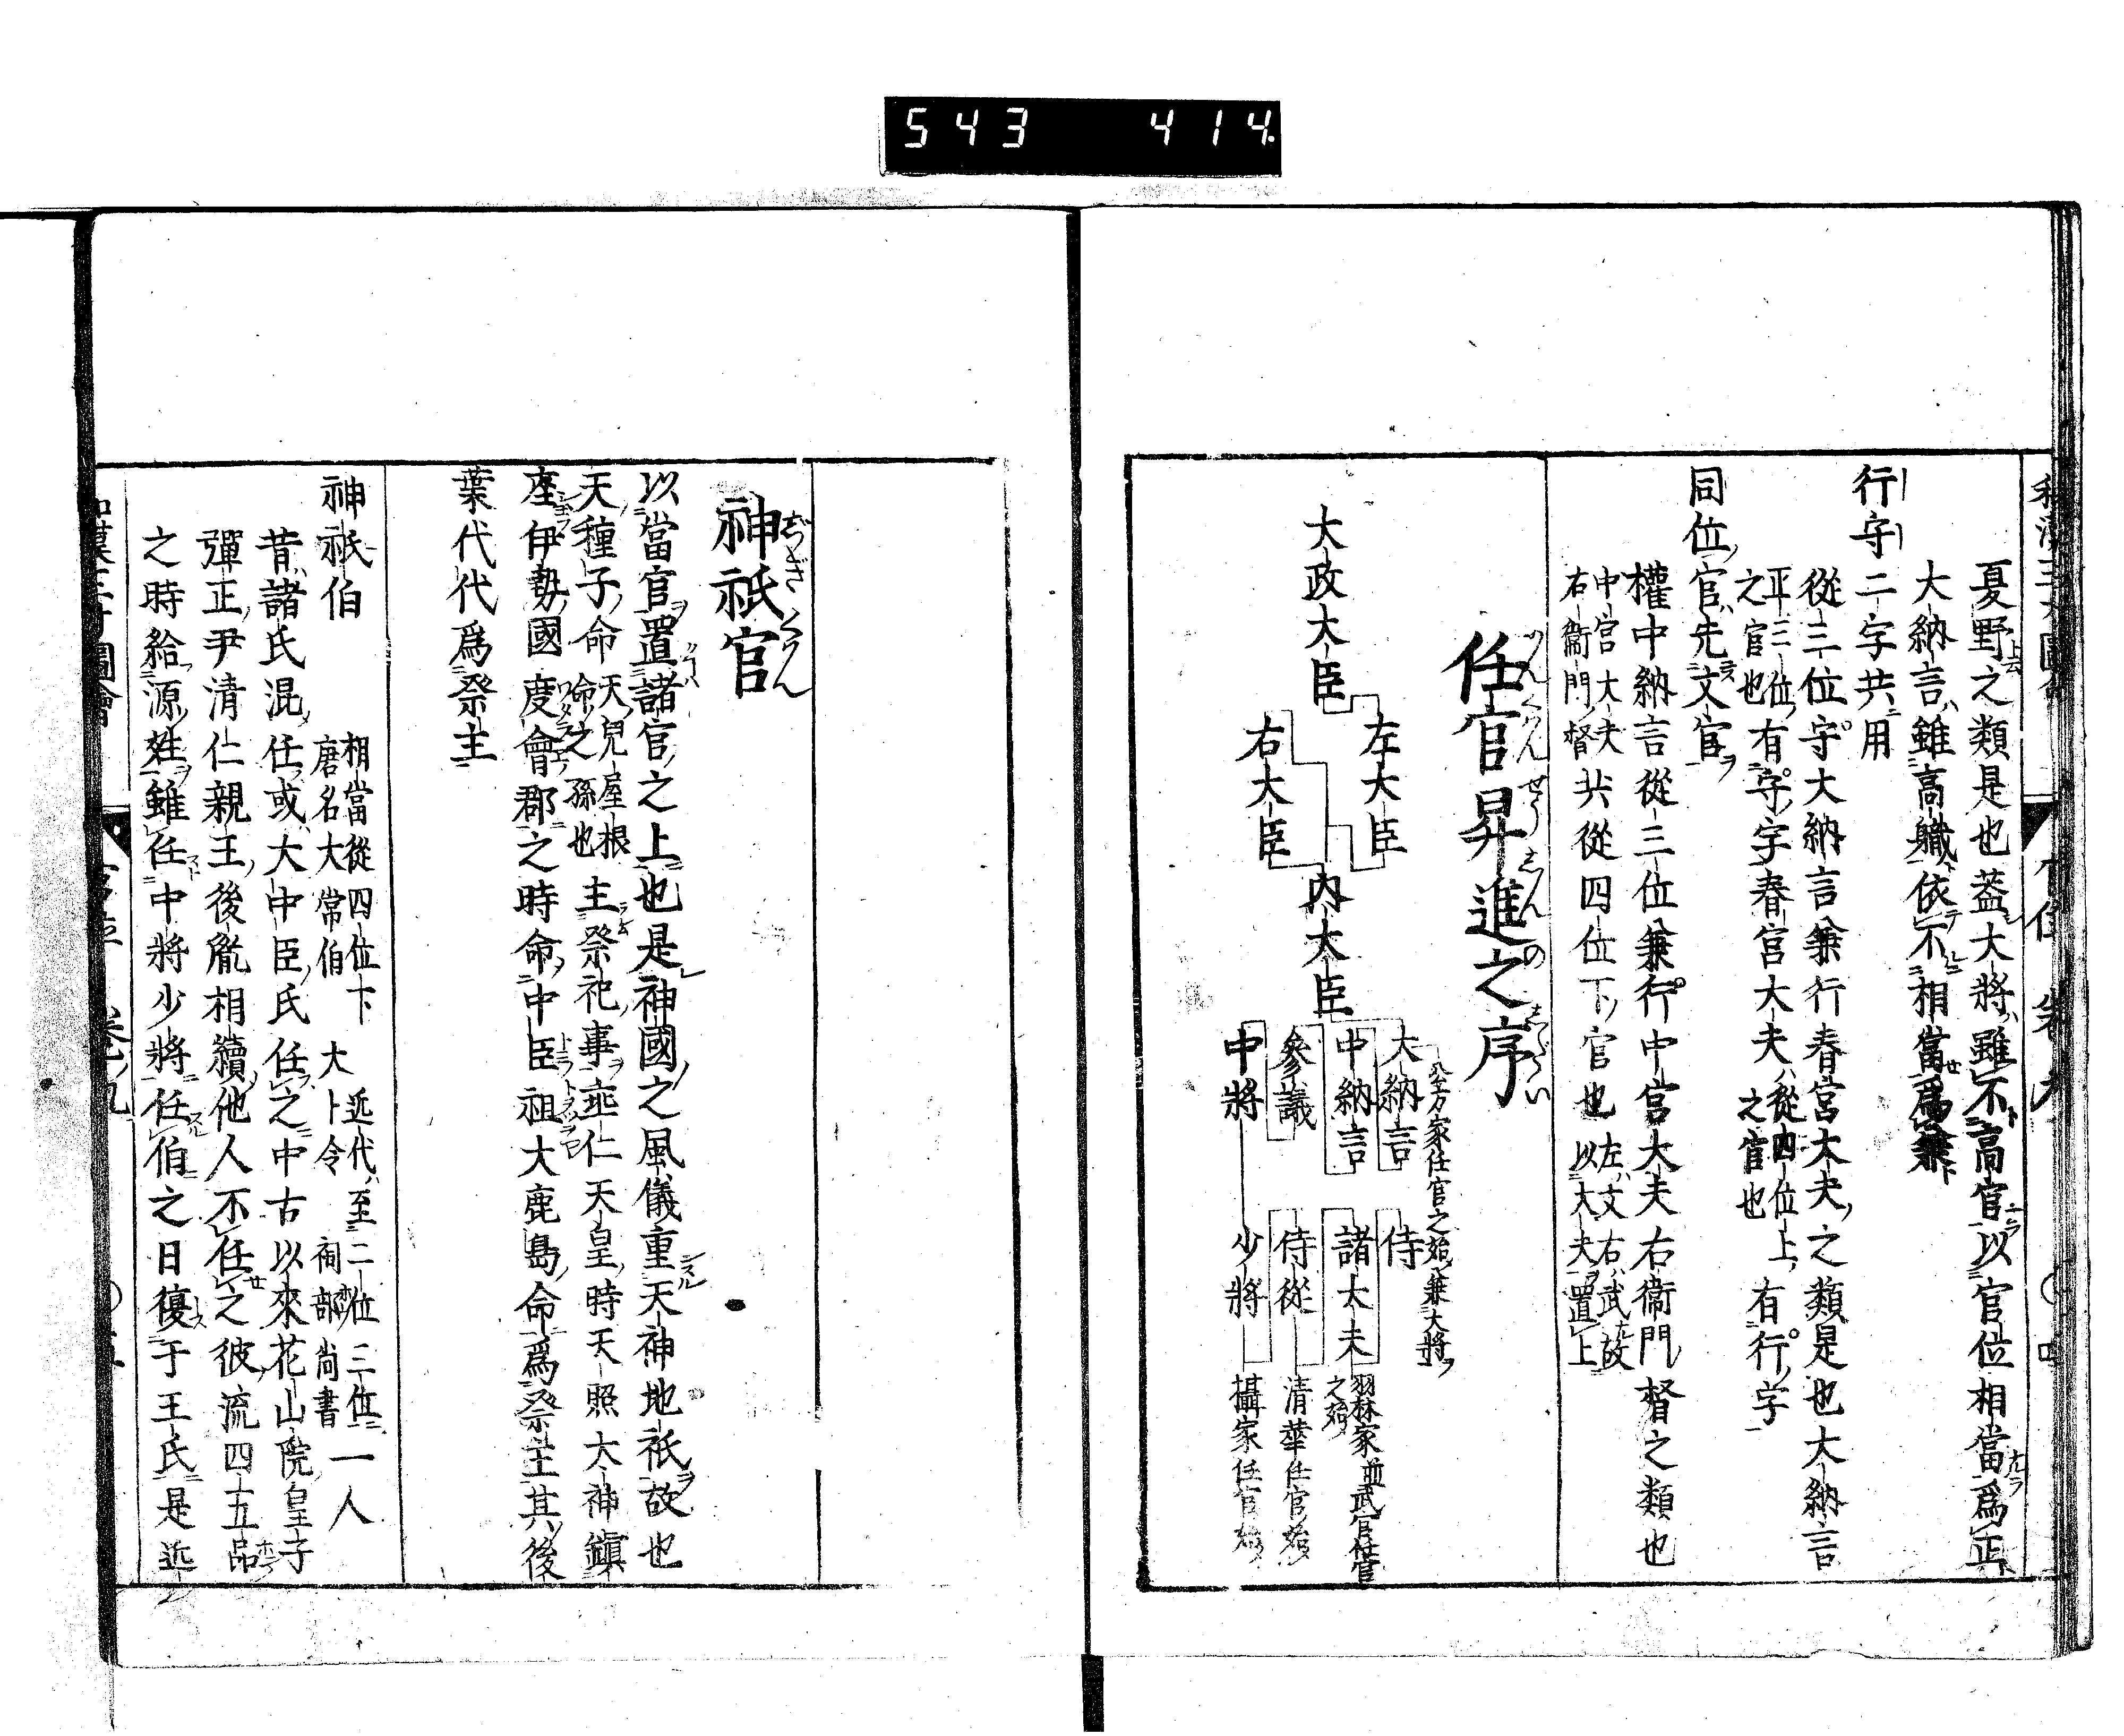 543 414
夏野之類是也葢大將雖不高官以官位相當爲正
大納言雖高職依不相當爲兼
行守二字共用
從三位守大納言兼行春宮大夫之類是也大納言
正三位有守字春宮大夫從四位上有行字
之官也 之官也
同位官先文官
權中納言從三位兼行中宮大夫右衞門督之類也
中宮大夫 右衞門督共從四位下官也 左文右武故 以大夫置上
任官昇進之序
にんくわんせうしんのしだい
大政大臣
左大臣
右大臣
内大臣
大納言
中納言
參議
中將
侍
諸大夫
侍從
少將
公方家任官之始兼大將
羽林家並武官任官之始
清華任官始
攝家任官始
神祇官
じんぎくわん
以當官置諸官之上也是神國之風儀重天神地祇故也
天種子命 天兒屋根命之孫也 主祭祀事垂仁天皇時天照大神鎮
座伊勢國度會郡之時命中臣祖大鹿島命爲祭主其後
葉代代爲祭主
神祇伯 相當從四位下 近代至二位三位 一人
唐名大常伯 大卜令 祠部尚書
昔諸氏混任或大中臣氏任之中古以來花山院皇子
彈正尹清仁親王後胤相續他人不任之彼流四五品
之時給源姓雖任中將少將任伯之日復于王氏是近